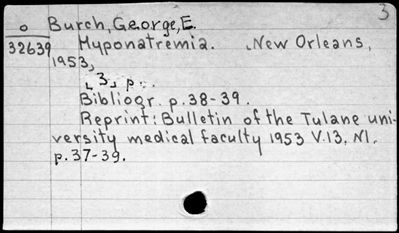 3
o Burch, George, E.
32639 Hyponatremia. New Orleans,
1953,
[3] p.
Bibliogr. p.38-39.
Reprint: Bulletin of the Tulane uni-
versity medical faculty 1953 V.13, N1.
p.37-39.